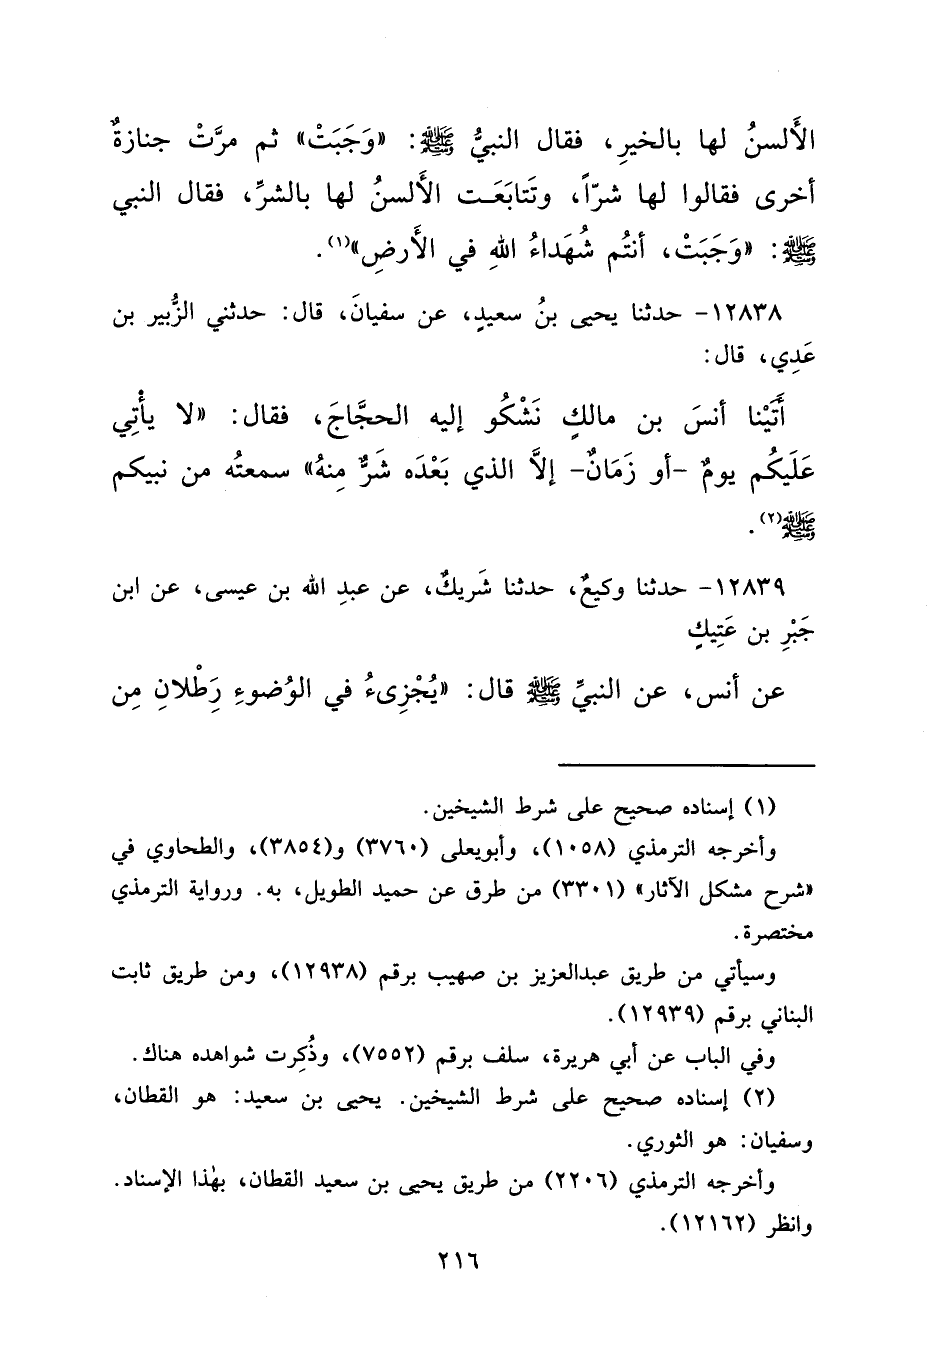 الأَلسنُ لها بالخيرِ، فقال النبيُّ ﷺ: «وَجَبَتْ» ثم مرَّتْ جنازةٌ
أخرى فقالوا لها شرّاً، وتَتابَعَـت الأَلسنُ لها بالشرِّ، فقال النبي
ﷺ: «وَجَبَتْ، أنتُم شُهَداءُ اللهِ في الأَرضِ»(١).
١٢٨٣٨- حدثنا يحيى بنُ سعيدٍ، عن سفيانَ، قال: حدثني الزُّبير بن
عَدِي، قال:
أَتَيْنا أنسَ بن مالكٍ نَشْكُو إليه الحجَّاجَ، فقال: «لا يأْتِي
عَلَيكُم يومٌ -أو زَمَانٌ- إلاَّ الذي بَعْدَه شَرٌّ مِنهُ» سمعتُه من نبيكم
ﷺ(٢).
١٢٨٣٩- حدثنا وكيعٌ، حدثنا شَريكٌ، عن عبدِ الله بن عيسى، عن ابن
جَبْرِ بن عَتِيكٍ
عن أنس، عن النبيِّ ﷺ قال: «يُجْزِىءُ في الوُضوءِ رِطْلانِ مِن
(١) إسناده صحيح على شرط الشيخين.
وأخرجه الترمذي (١٠٥٨)، وأبويعلى (٣٧٦٠) و(٣٨٥٤)، والطحاوي في
«شرح مشكل الآثار» (٣٣٠١) من طرق عن حميد الطويل، به. ورواية الترمذي
مختصرة.
وسيأتي من طريق عبدالعزيز بن صهيب برقم (١٢٩٣٨)، ومن طريق ثابت
البناني برقم (١٢٩٣٩).
وفي الباب عن أبي هريرة، سلف برقم (٧٥٥٢)، وذُكِرت شواهده هناك.
(٢) إسناده صحيح على شرط الشيخين. يحيى بن سعيد: هو القطان،
وسفيان: هو الثوري.
وأخرجه الترمذي (٢٢٠٦) من طريق يحيى بن سعيد القطان، بهٰذا الإسناد.
وانظر (١٢١٦٢).
٢١٦